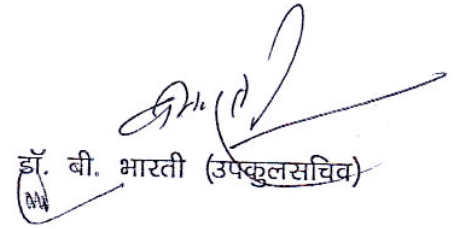 डॉ. बी. भारती (उपकुलसचिव)